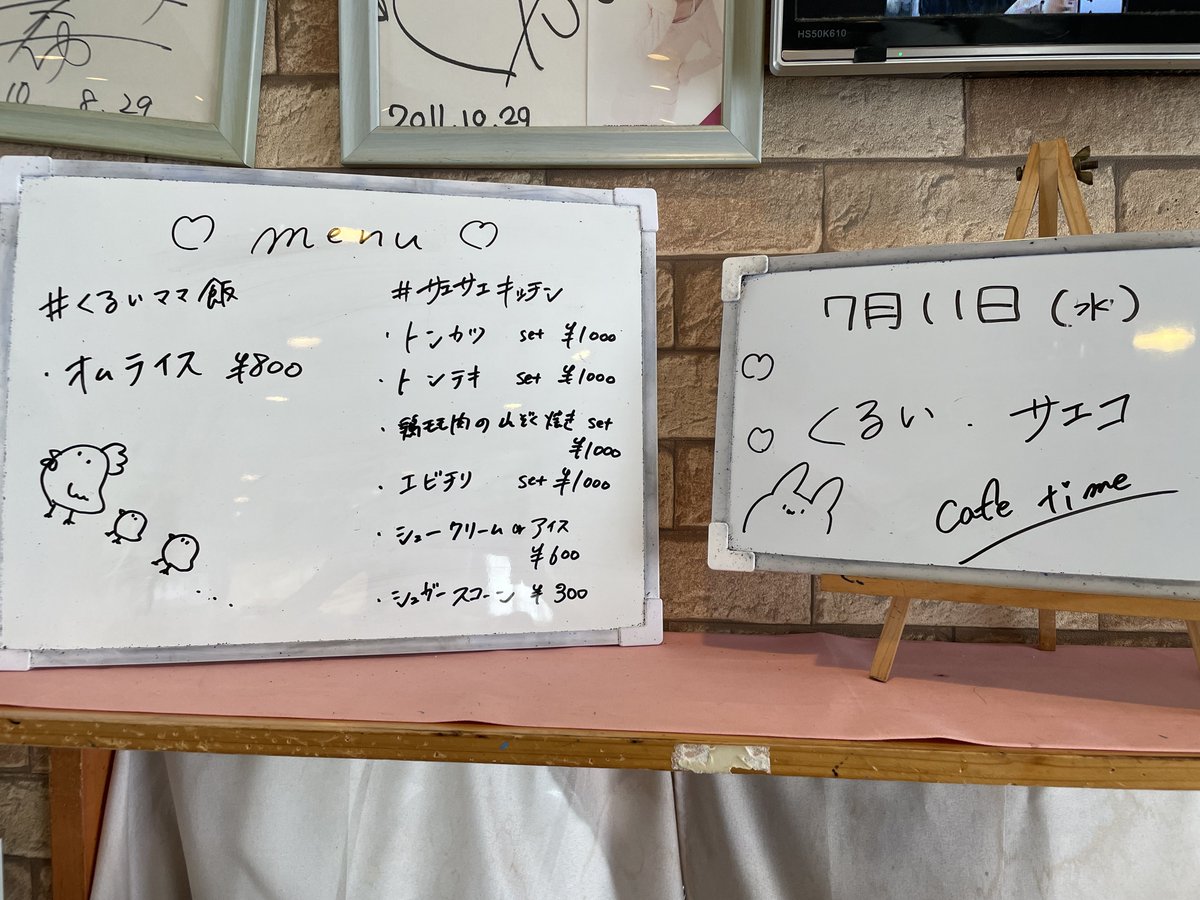 10 8.29
2011.10.29
HS50K610
♡ menu ♡
#くるいママ飯
・オムライス ¥800
#サエサエキッチン
・トンカツ set ¥1000
・トンテキ set ¥1000
・鶏モモ肉の山ぞく焼き set
¥1000
・エビチリ set ¥1000
・シュークリーム or アイス
¥600
・シュガースコーン ¥300
...
7月11日(水)
♡
♡ くるい . サエコ
cafe time